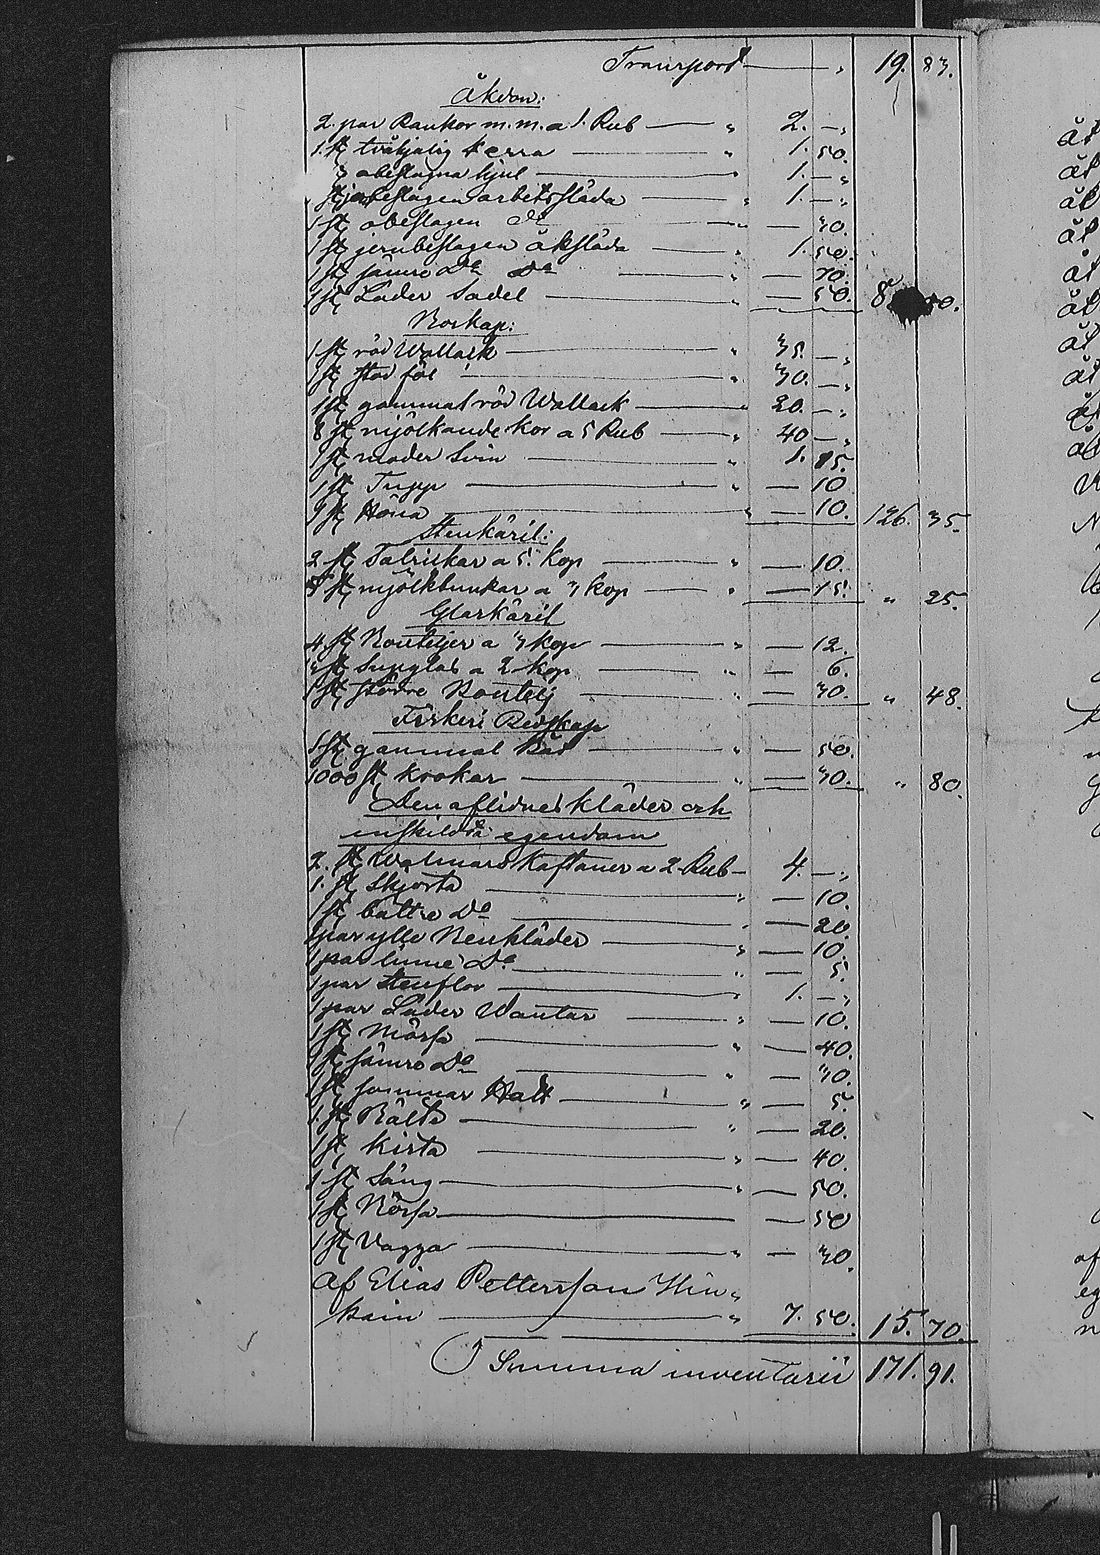 Transport — " 19. 83.
Åkdon:
2. par Rankor m.m. a 1. Rub — " 2. — "
1. st tvåhjulig kerra — " 1. 50.
3 obeslagna hjul — " 1. — "
1 st jernbeslagen arbetssläda — " 1. — "
1 st obeslagen do — " — 30.
1 st jernbeslagen åksläda — " 1. 50.
1 st sämre Do Do — " — 70.
1 st Läder Sadel — " — 50. 8 50.
Boskap:
1 st röd Wallack — " 35. — "
1 st stod föl — " 30. — "
1 st gammal röd Wallack — " 20. — "
8 st mjölkande kor a 5 Rub — " 40 — "
1 st moder Svin — " 1. 15.
1 st Tupp — " — 10
9 st Höna — " — 10. 126. 35.
Stenkäril:
2 st Talrickar a 5. kop — " — 10.
5 st mjölkbunkar a 3 kop — " — 15. " 25.
Glaskäril
4 st Bouteljer a 3 kop — " — 12.
3 st Supglas a 2 kop — " — 6.
1 st större Boutelj — " — 30. " 48.
Fiskeri Redskap
1 st gammal Båt — " — 50.
1000 st krokar — " — 30. " 80.
Den aflidnes kläder och
enskilda egendom
2. st Walmars Kaftaner a 2 Rub — 4. — "
1. st Skjorta — " — 10.
1 st bättre Do — " — 20.
1 par ylle Benkläder — " — 10.
1 par linne Do — " — 5.
1 par Stöflor — " 1. — "
1 par Läder Wantar — " — 10.
1 st Mössa — " — 40.
1 st sämre Do — " — 30.
1 st sommar Hatt — " — 5.
1. st Bälte — " — 20.
1 st kista — " — 40.
1 st Säng — " — 50.
1 st Börsa — — 50
1 st Vagga — " — 30.
af Elias Pettersson Hin "
kain — " 7. 50. 15. 70.
Summa inventarii 171. 91.